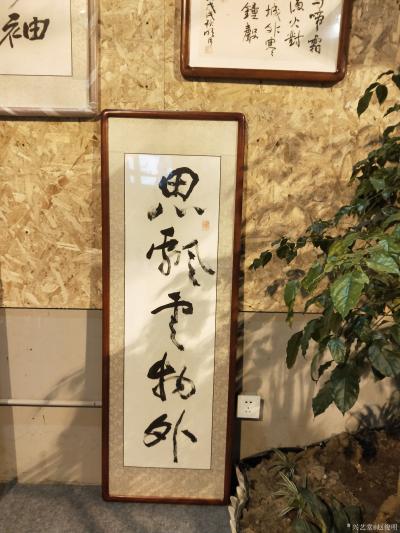 袖
啼霜
火對
城外寒
鐘聲
思飄雲物外
兴艺堂@赵俊明